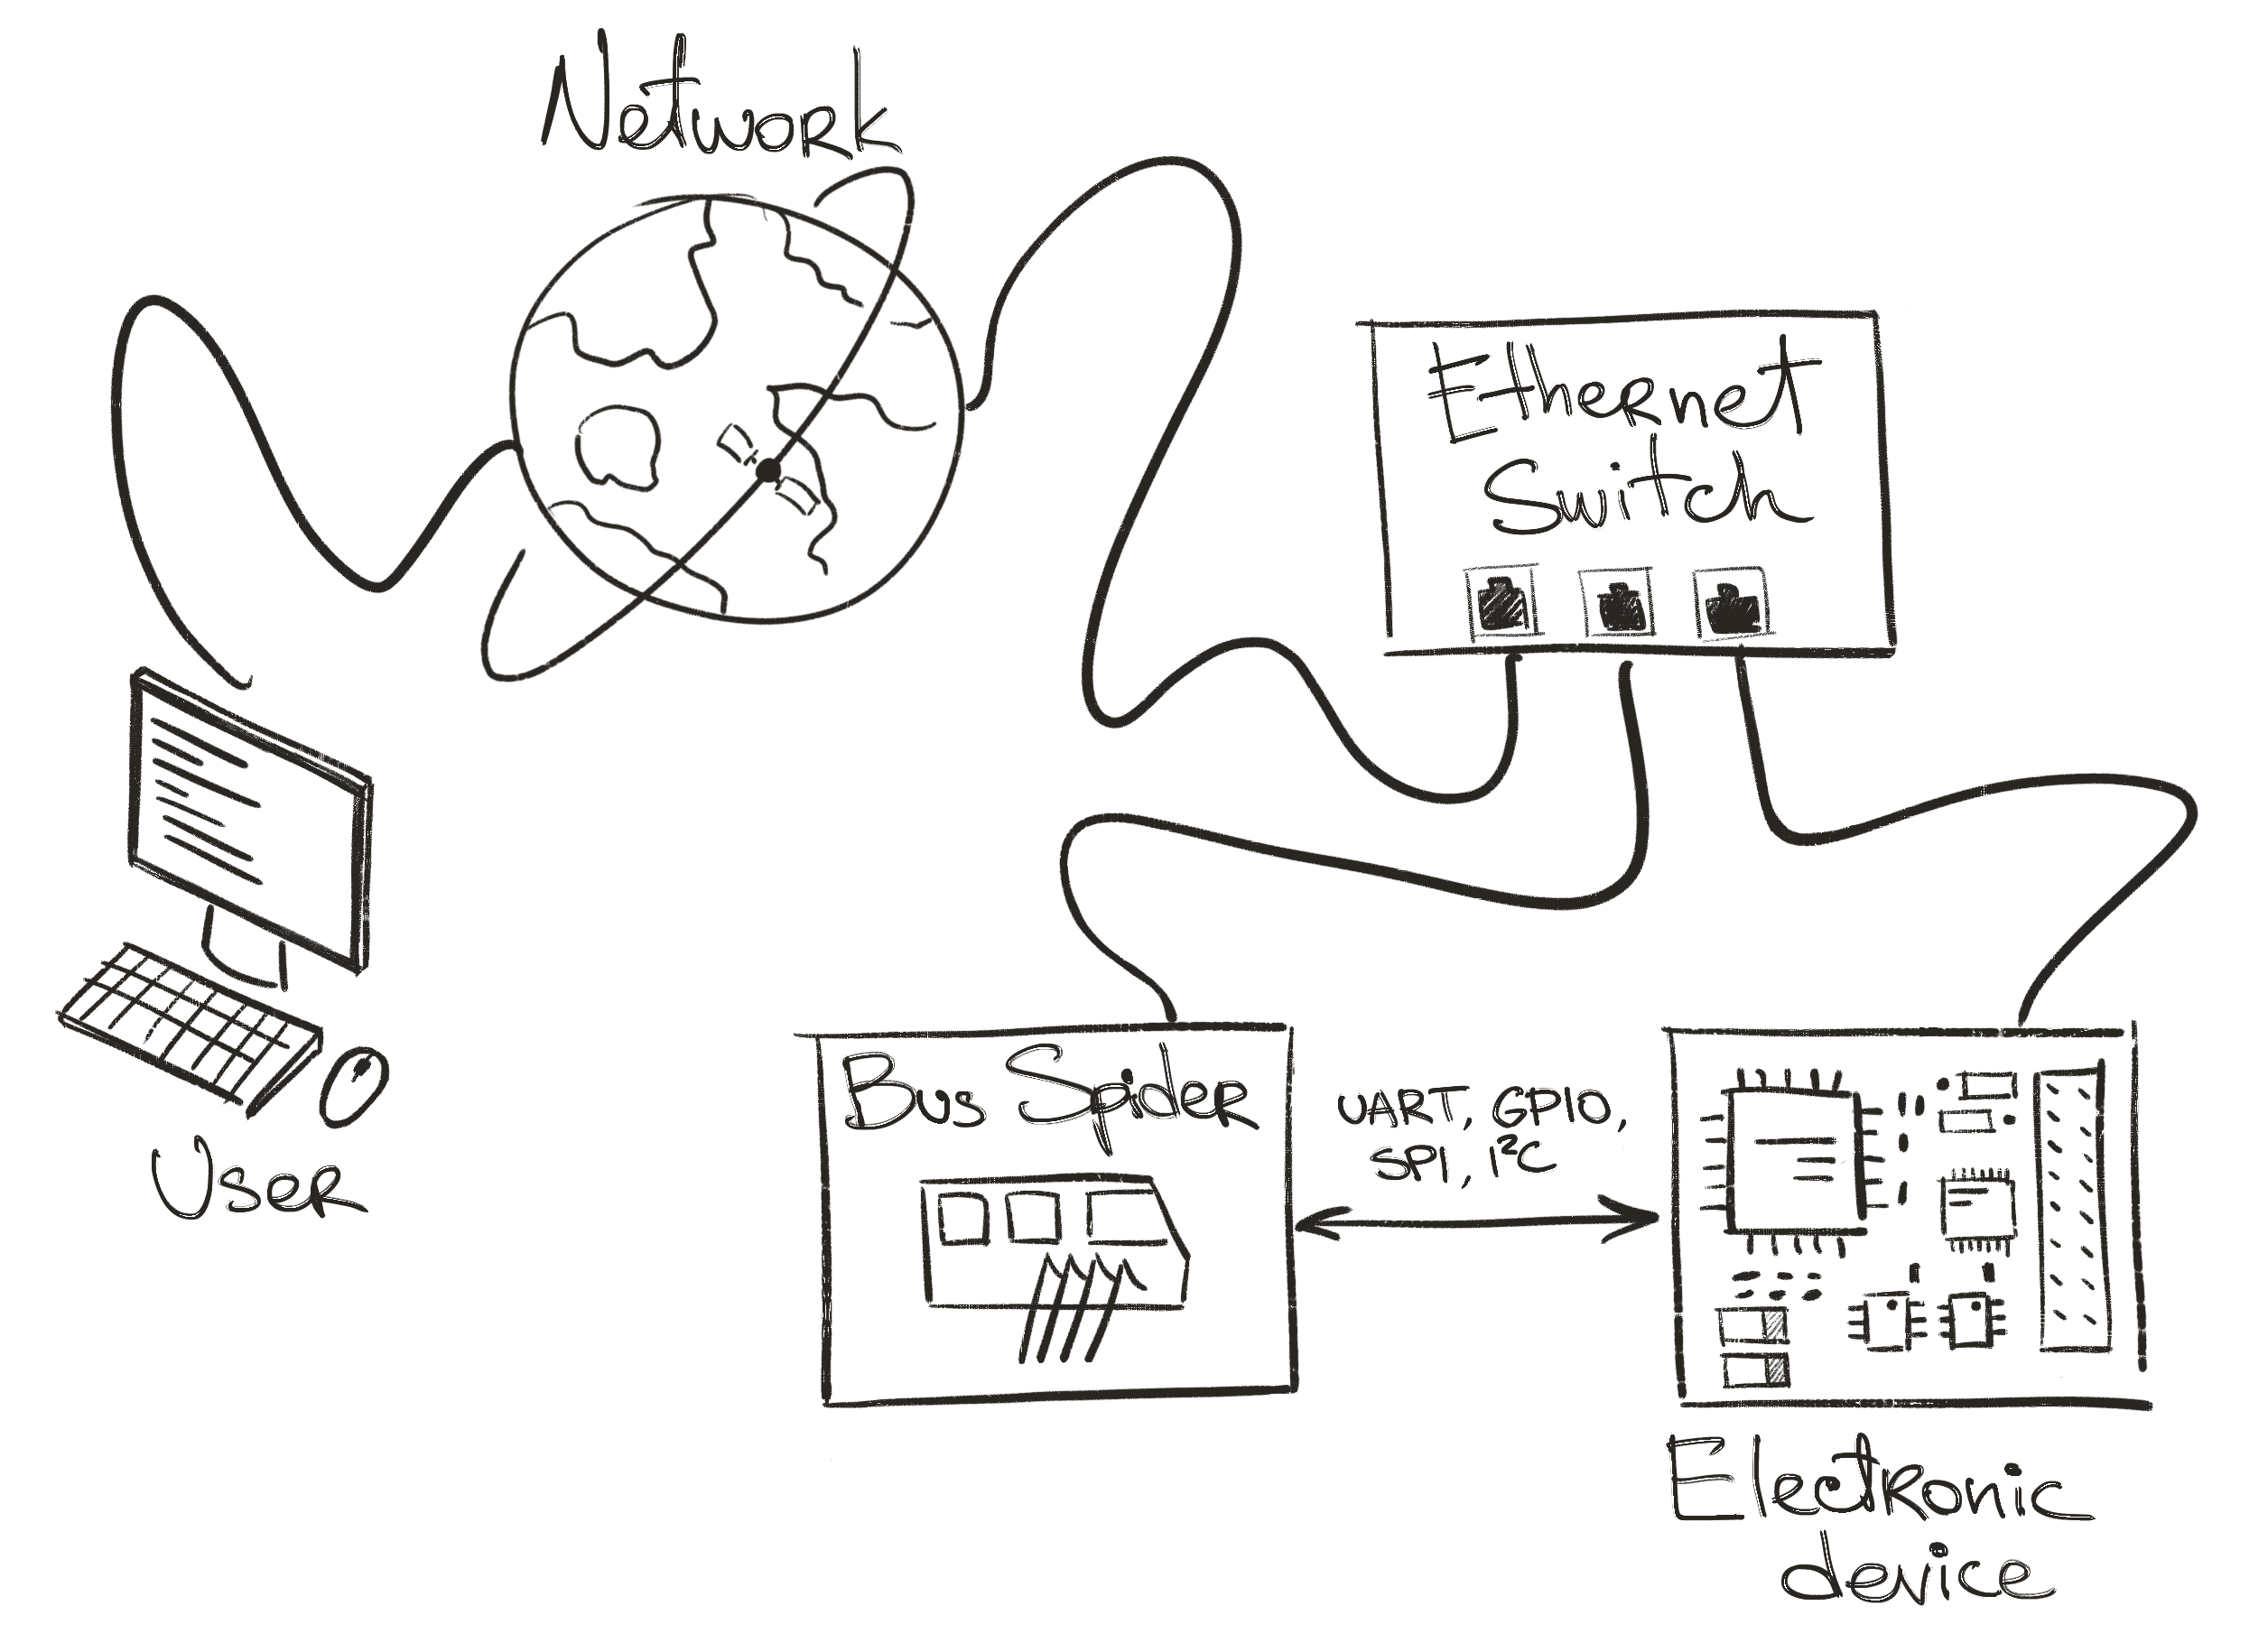 Network
Ethernet
Switch
User
Bus Spider
UART, GPIO,
SPI, I²C
Electronic
device